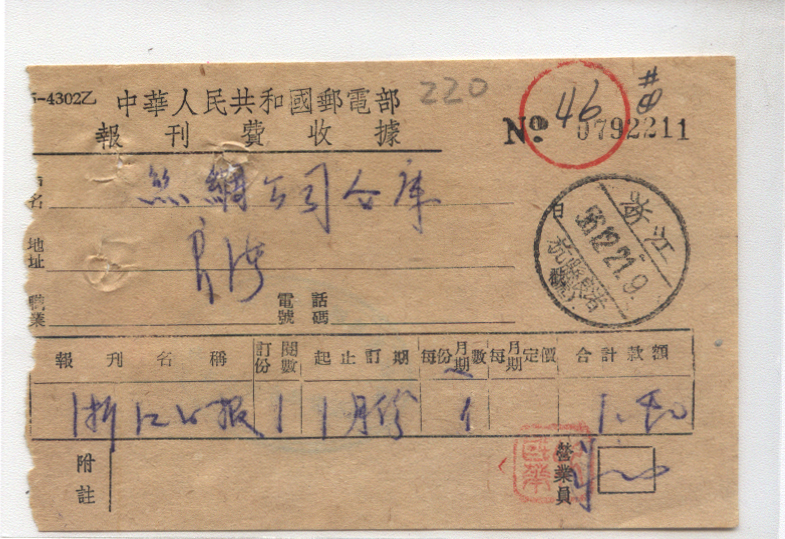 5-4302乙 中華人民共和國郵電部 220
報刊費收據 № 0792211
46
名 絲綢公司仓庫
地址 良渚
職業 電話號碼
浙江
56.12.21.9
杭縣
報刊名稱 訂閱份數 起止訂期 每份月期數 每月期定價 合計款額
浙江日报 1 1月份 1
附註 營業員